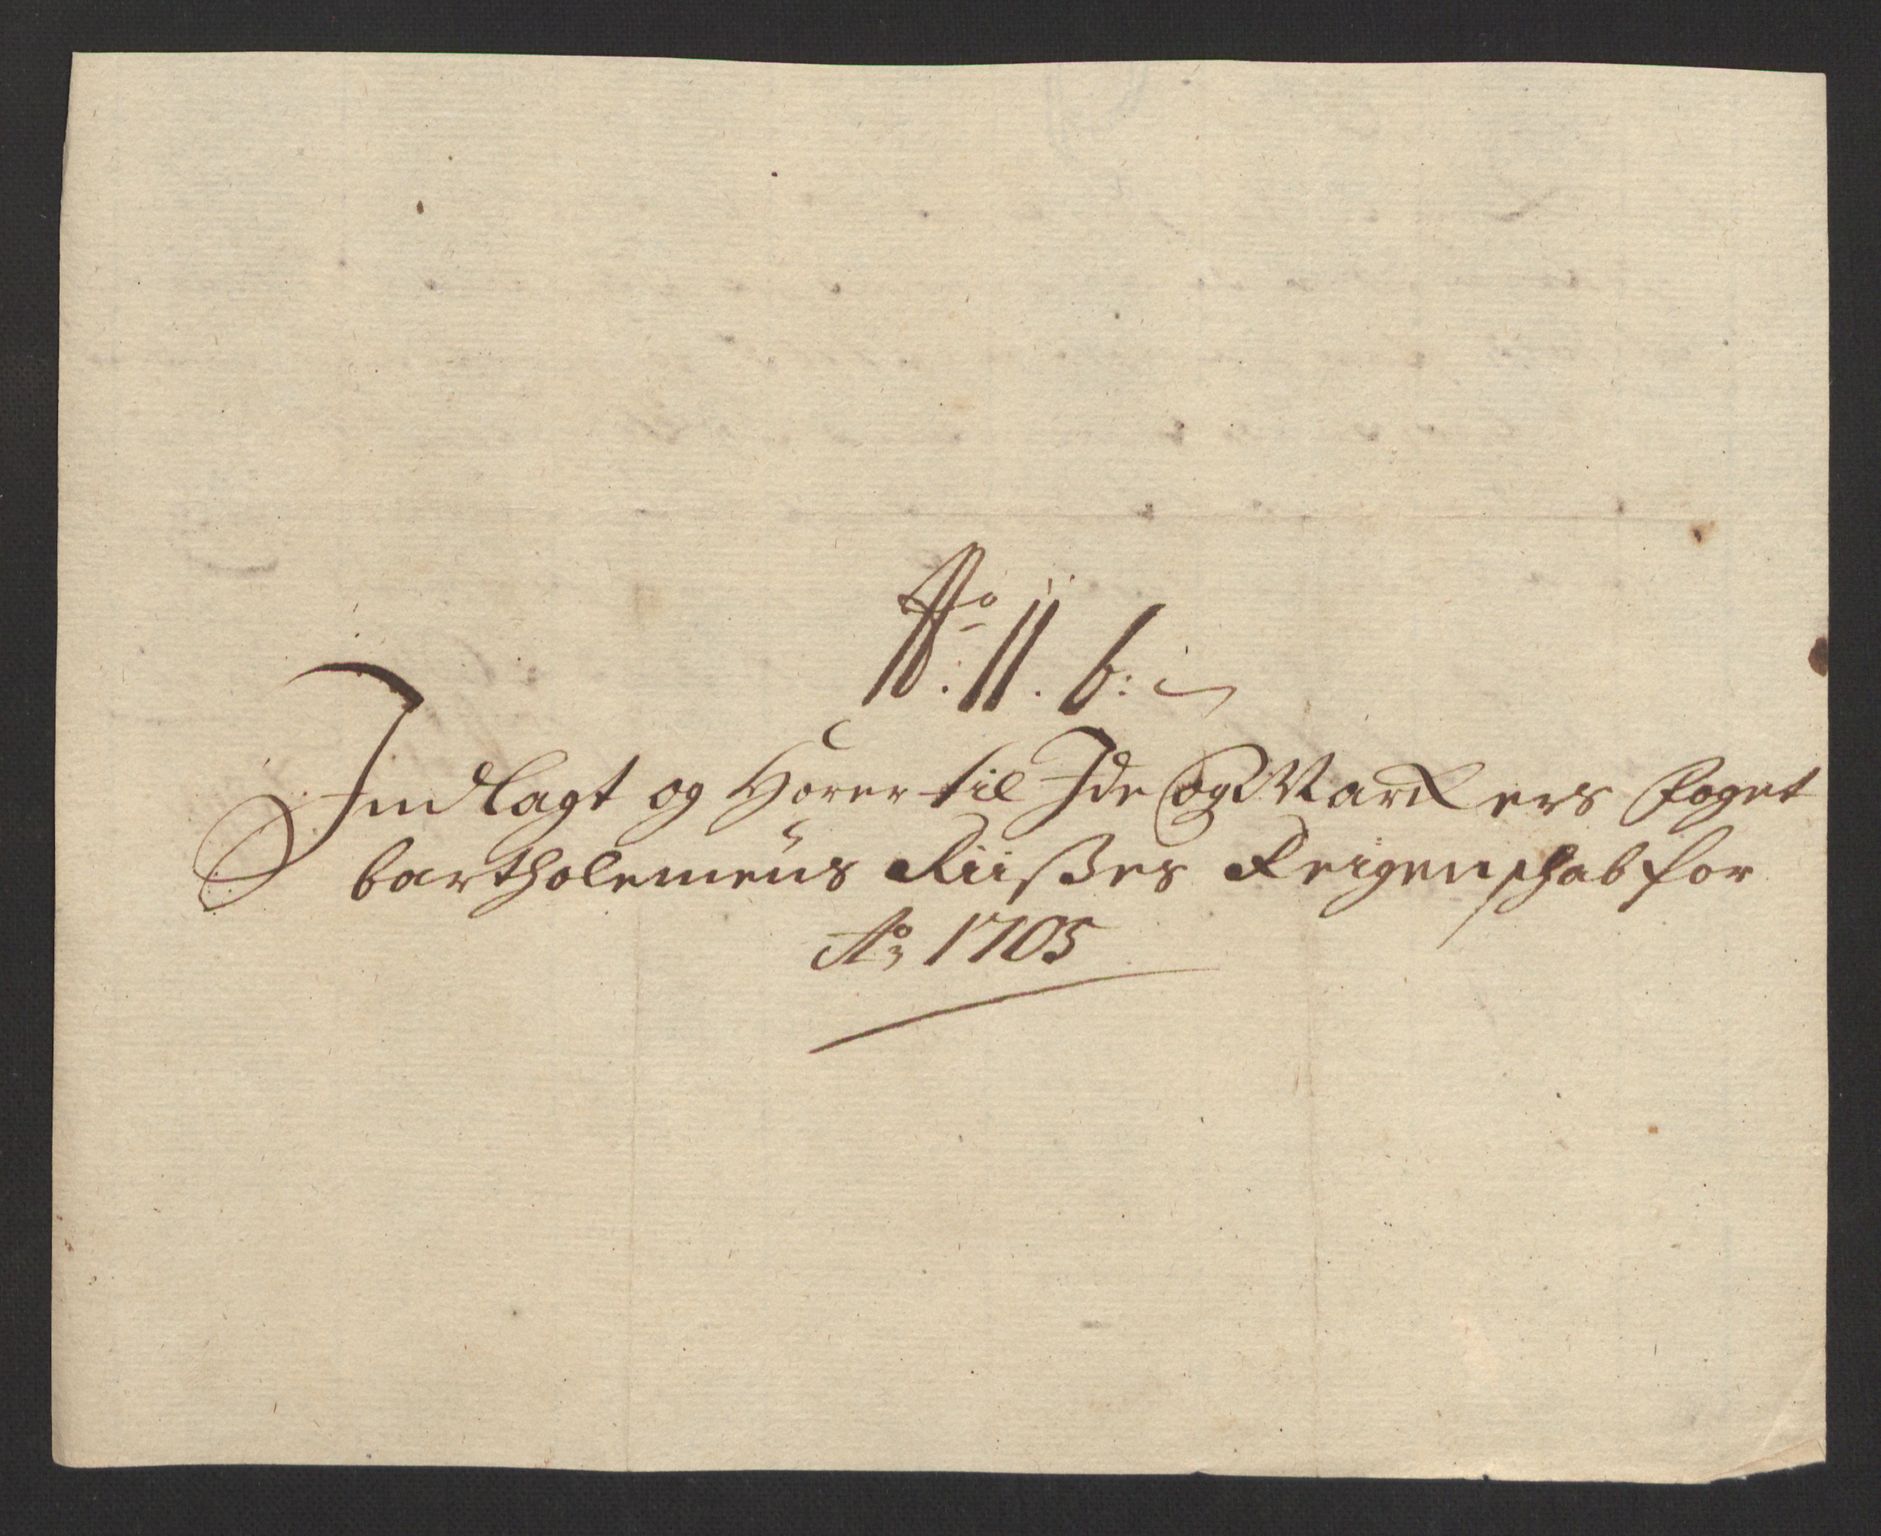 No. 11. b:
Indlagt og Hører til Ide og Marckers foget
bartholemeus Riisses Reigenschab for
Ao 1705